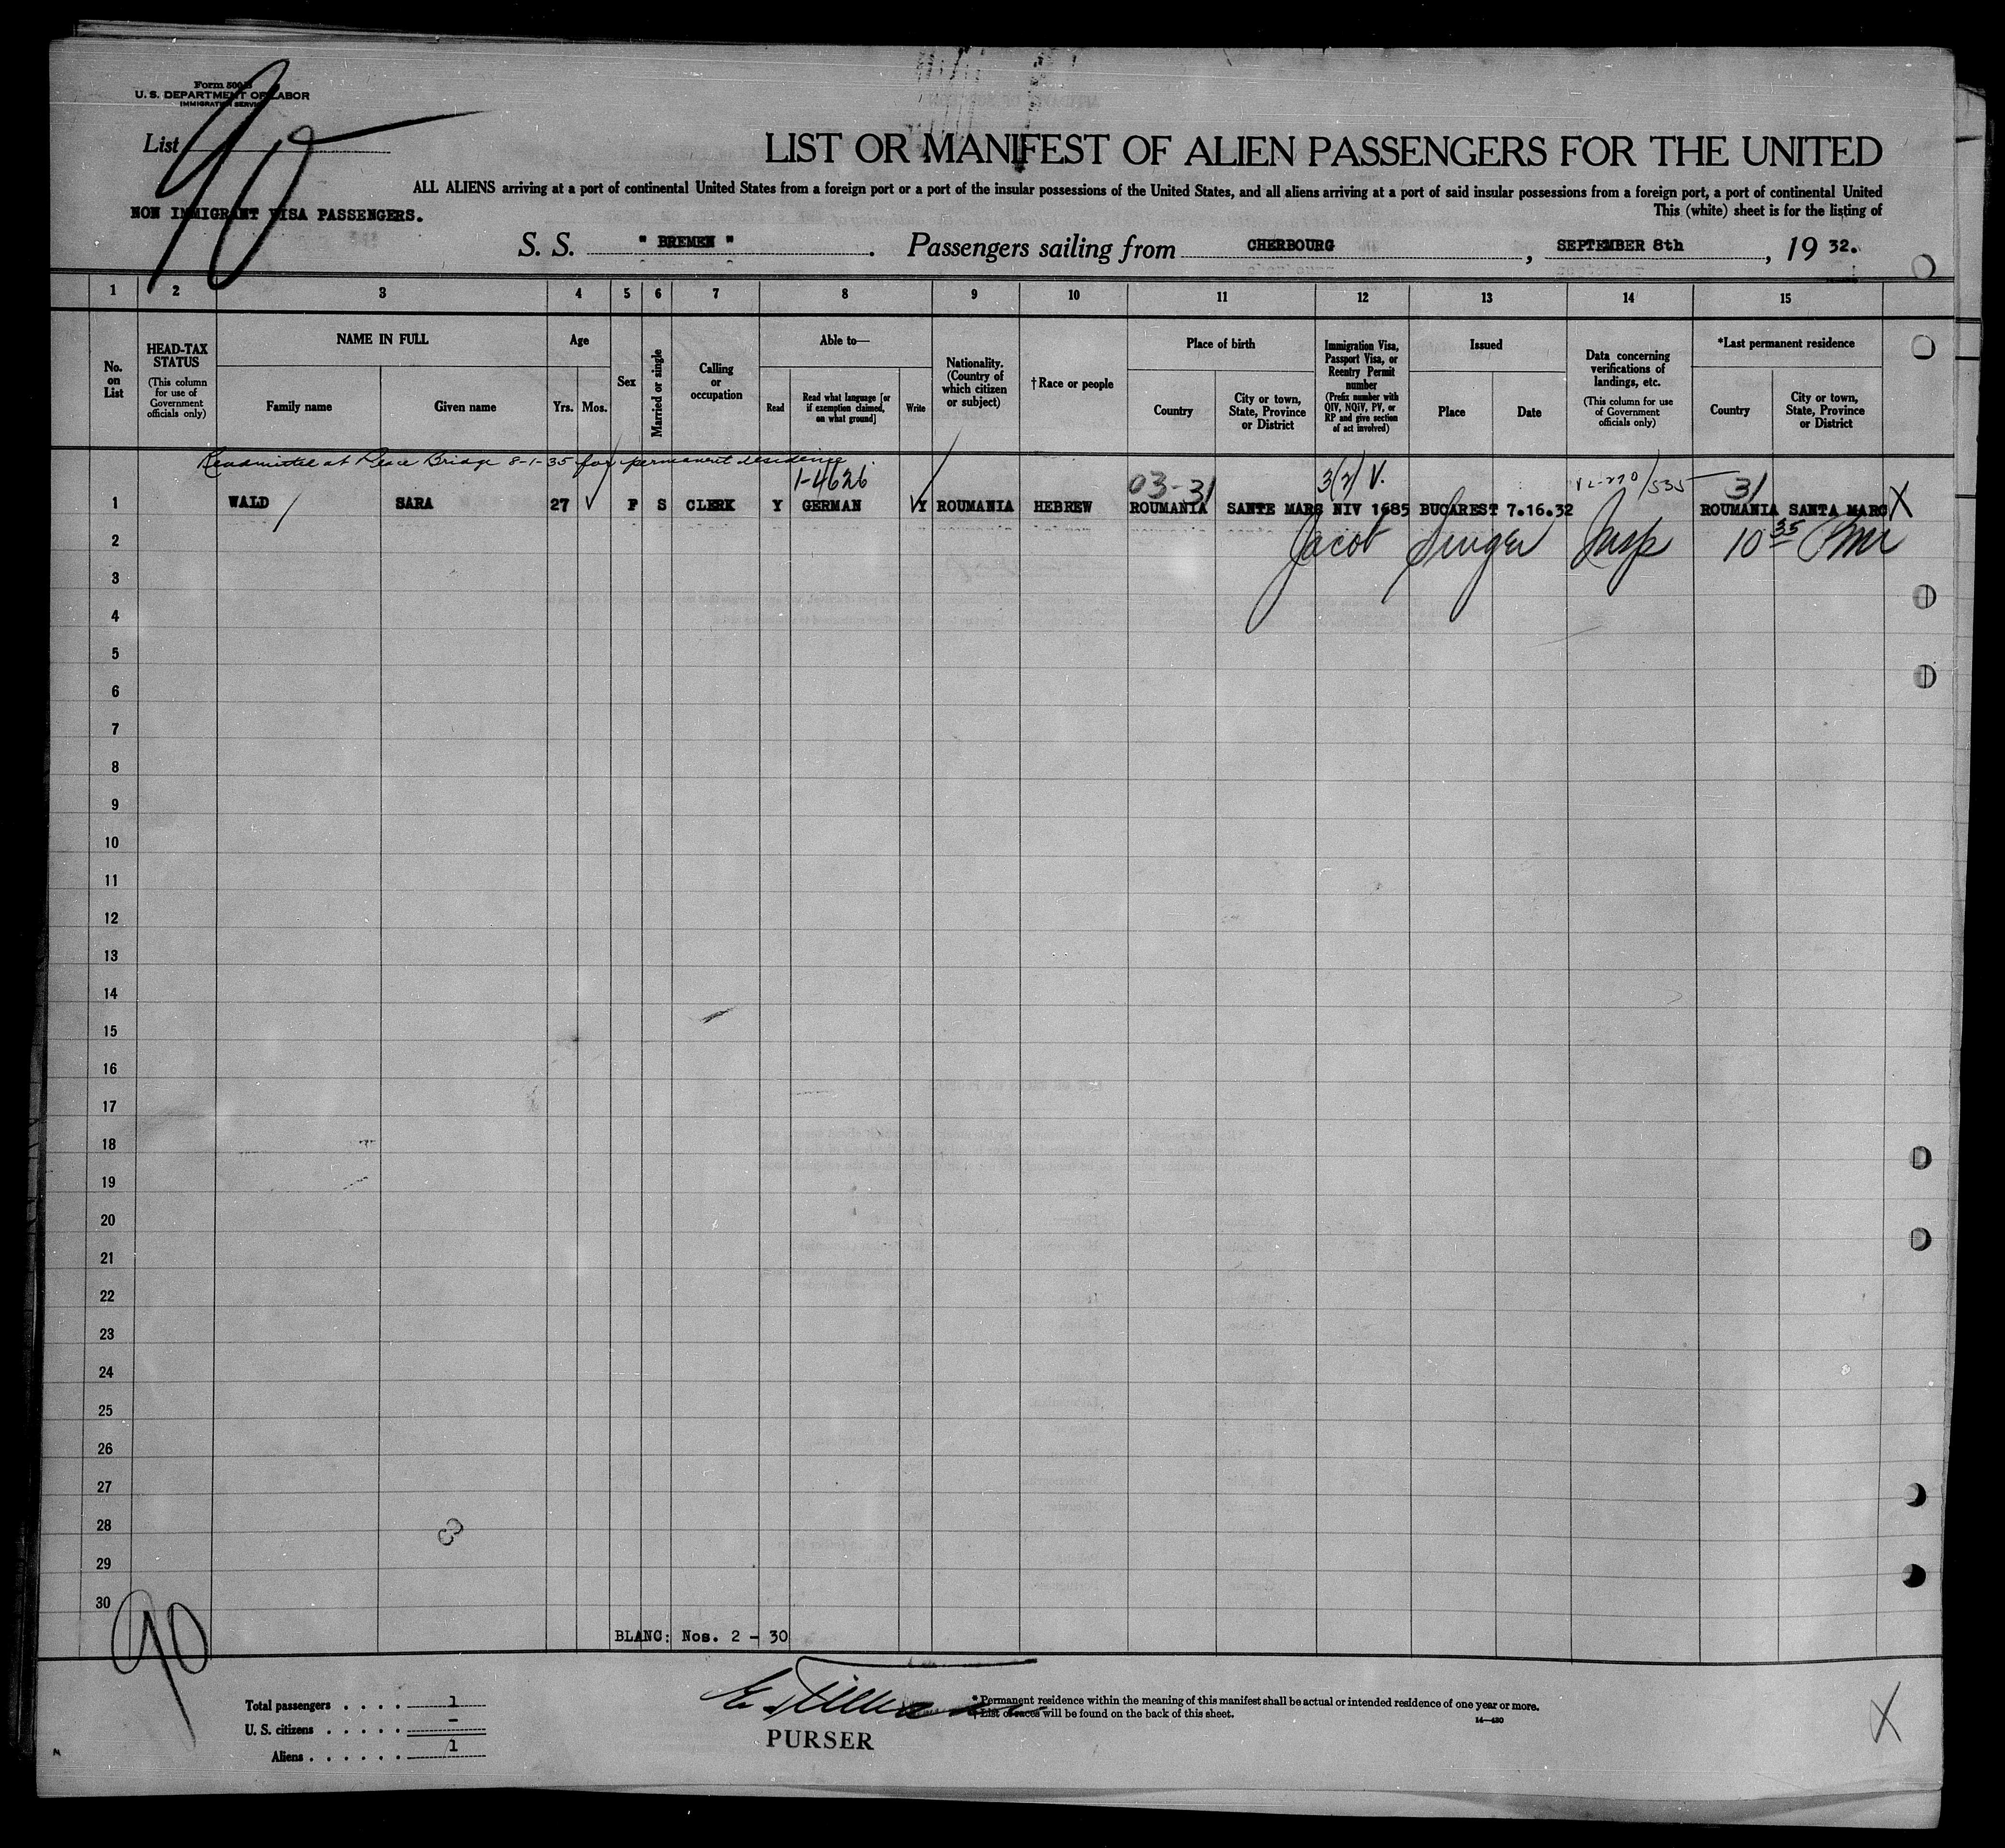 Form 500 B
U. S. DEPARTMENT OF LABOR
IMMIGRATION SERVICE
List 90
LIST OR MANIFEST OF ALIEN PASSENGERS FOR THE UNITED
ALL ALIENS arriving at a port of continental United States from a foreign port or a port of the insular possessions of the United States, and all aliens arriving at a port of said insular possessions from a foreign port, a port of continental United
NON IMMIGRANT VISA PASSENGERS.
This (white) sheet is for the listing of
S. S. " BREMEN ". Passengers sailing from CHERBOURG, SEPTEMBER 8th, 19 32.
1 2 3 4 5 6 7 8 9 10 11 12 13 14 15
No. on List
HEAD-TAX STATUS (This column for use of Government officials only)
NAME IN FULL
Family name
Given name
Age
Yrs. Mos.
Sex
Married or single
Calling or occupation
Able to—
Read
Read what language [or if exemption claimed, on what ground]
Write
Nationality. (Country of which citizen or subject)
†Race or people
Place of birth
Country
City or town, State, Province or District
Immigration Visa, Passport Visa, or Reentry Permit number (Prefix number with QIV, NQIV, PV, or RP and give section of act involved)
Issued
Place
Date
Data concerning verifications of landings, etc. (This column for use of Government officials only)
*Last permanent residence
Country
City or town, State, Province or District
Readmitted at Peace Bridge 8-1-35 for permanent residence.
1-4626 03-31 3(2) V. 31
1 WALD SARA 27 F S CLERK Y GERMAN Y ROUMANIA HEBREW ROUMANIA SANTE MARS NIV 1685 BUCAREST 7.16.32 ROUMANIA SANTA MARC X
2 Jacob Singer Insp 10 35
3
4
5
6
7
8
9
10
11
12
13
14
15
16
17
18
19
20
21
22
23
24
25
26
27
28
29
30
90
BLANC: Nos. 2 - 30
Total passengers . . . . 1
U. S. citizens . . . . . -
Aliens . . . . . . 1
PURSER
* Permanent residence within the meaning of this manifest shall be actual or intended residence of one year or more.
† List of races will be found on the back of this sheet.
14—430
X